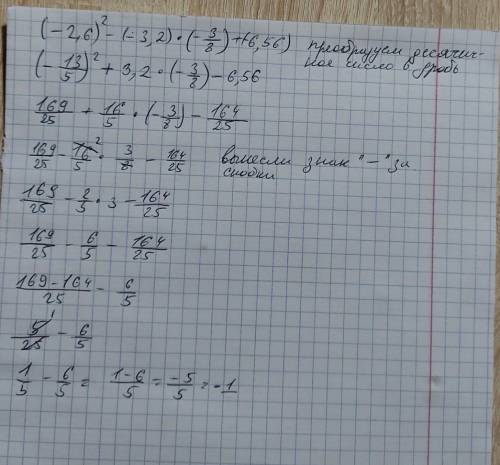 (-2,6)² - (-3,2) · (-3/8) + (-6,56) преобразуем десятич-
(-13/5)² + 3,2 · (-3/8) - 6,56 ное число в дробь
169/25 + 16/5 · (-3/8) - 164/25
169/25 - 16²/5 · 3/8 - 164/25 вынесли знак "-" за
скобки
169/25 - 2/5 · 3 - 164/25
169/25 - 6/5 - 164/25
169-164/25 - 6/5
5¹/25 - 6/5
1/5 - 6/5 = 1-6/5 = -5/5 = -1